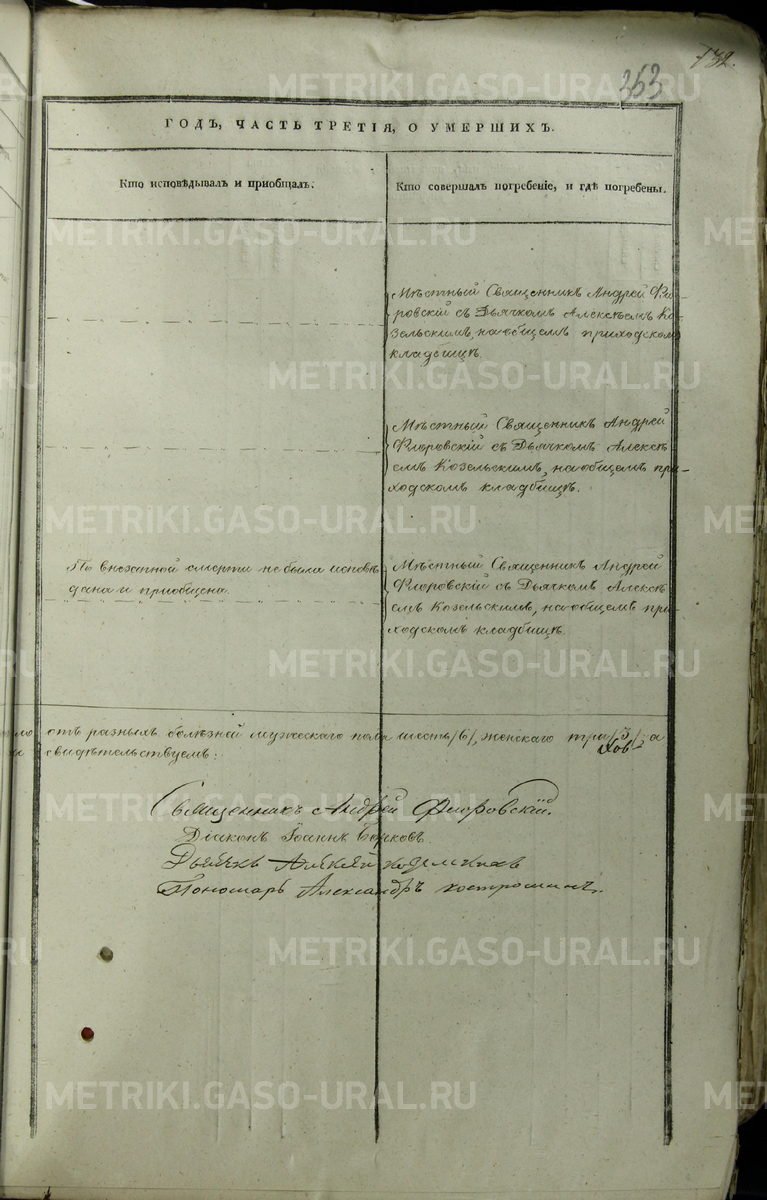 132.
263
ГОДЪ, ЧАСТЬ ТРЕТІЯ, О УМЕРШИХЪ.
Кто исповѣдывалъ и приобщалъ.
Кто совершалъ погребеніе, и гдѣ погребены.
Мѣстный Священникъ Андрей Фло-
ровскій съ Дьячкомъ Алексѣемъ Ко-
зельскимъ, на общемъ приходскомъ
кладбищѣ.
Мѣстный Священникъ Андрей
Флоровскій съ Дьячкомъ Алексѣ
емъ Козельскимъ, на общемъ при-
ходскомъ кладбищѣ.
По внезапной смерти не была исповѣ
дана и приобщена.
Мѣстный Священникъ Андрей
Флоровскій съ Дьячкомъ Алексѣ
емъ Козельскимъ, на общемъ при-
ходскомъ кладбищѣ.
отъ разныхъ болѣзней мужескаго пола шесть /6/, женскаго три /3/; а
свидѣтельствуемъ:
Священникъ Андрей Флоровскій.
Діаконъ Іоаннъ
Дьячекъ Алексѣй
Пономарь Александръ
METRIKI.GASO-URAL.RU